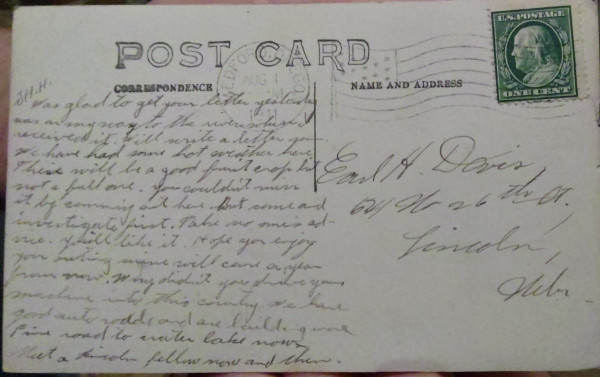 POST CARD
CORRESPONDENCE
NAME AND ADDRESS
U.S. POSTAGE
ONE CENT
MEDFORD
AUG 1
1911
Was glad to get your letter yesterday
was on my way to the river when I
received it. Will write a letter
We have had some hot weather here.
There will be a good fruit crop but
not a full one. you couldn't miss
it by comming out here. But come and
investigate first. Take no one's ad-
vice. You'll like it. Hope you enjoy
your outing mine will come a year
from now. Why didn't you drive your
machine into this country. We have
good auto roads and are building more
Fine road to crater lake now.
Meet a Lincoln fellow now and then.
Earl H. Davis
No 26th St,
Lincoln,
Nebr